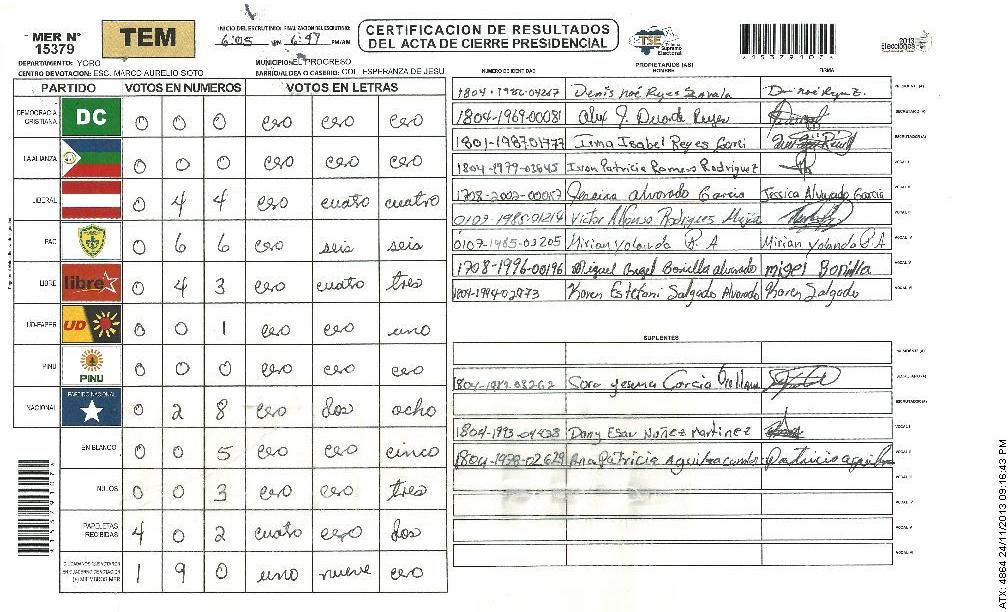 MER N° 15379
TEM
INICIO DEL ESCRUTINIO: FINALIZACION DEL ESCRUTINIO:
6:05 6:47 PM/AM
CERTIFICACION DE RESULTADOS
DEL ACTA DE CIERRE PRESIDENCIAL
TSE Tribunal Supremo Electoral
2013
Elecciones
DEPARTAMENTO: YORO
MUNICIPIO: EL PROGRESO
CENTRO DE VOTACION: ESC. MARCO AURELIO SOTO
BARRIO/ALDEA O CASERIO: COL. ESPERANZA DE JESU
PARTIDO VOTOS EN NUMEROS VOTOS EN LETRAS
DEMOCRACIA CRISTIANA DC 0 0 0 cero cero cero
LA ALIANZA 0 0 0 cero cero cero
LIBERAL 0 4 4 cero cuatro cuatro
PAC 0 6 6 cero seis seis
LIBRE libre 0 4 3 cero cuatro tres
UD-FAPER UD 0 0 1 cero cero uno
PINU PINU 0 0 0 cero cero cero
NACIONAL PARTIDO NACIONAL 0 2 8 cero dos ocho
EN BLANCO 0 0 5 cero cero cinco
NULOS 0 0 3 cero cero tres
PAPELETAS RECIBIDAS 4 0 2 cuatro cero dos
CIUDADANOS QUE VOTARON EN CUADERNO DE VOTACION (+) MIEMBROS MER 1 9 0 uno nueve cero
PROPIETARIOS (AS)
NUMERO DE IDENTIDAD NOMBRE FIRMA
Denis Noé Reyes Zavala PRESIDENTE (A)
1804-1969-00081 Alex J. Duarte Reyes SECRETARIO (A)
1801-1987-01777 Irma Isabel Reyes ESCRUTADOR (A)
1804-1979-03645 Patricia Romero Rodriguez VOCAL I
1708-2002-00057 Alvarado Garcia Jessica Alvarado Garcia VOCAL II
0107-1980-01214 Victor Alfonso Rodriguez Mejia VOCAL III
0107-1985-03205 Mirian Yolanda R. A Mirian Yolanda R A VOCAL IV
1708-1996-00196 Miguel Angel Bonilla Alvarado migel Bonilla VOCAL V
1804-1994-02973 Karen Estefani Salgado Alvarado Karen Salgado VOCAL VI
SUPLENTES
PRESIDENTE (A)
1804-1989-03262 Sara Yesenia Garcia Orellana SECRETARIO (A)
ESCRUTADOR (A)
1804-1993-04438 Dany Esau Nuñez Martinez VOCAL I
1804-1978-02629 Ana Patricia VOCAL II
VOCAL III
VOCAL IV
VOCAL V
VOCAL VI
ATX: 4864 24/11/2013 09:16:43 PM